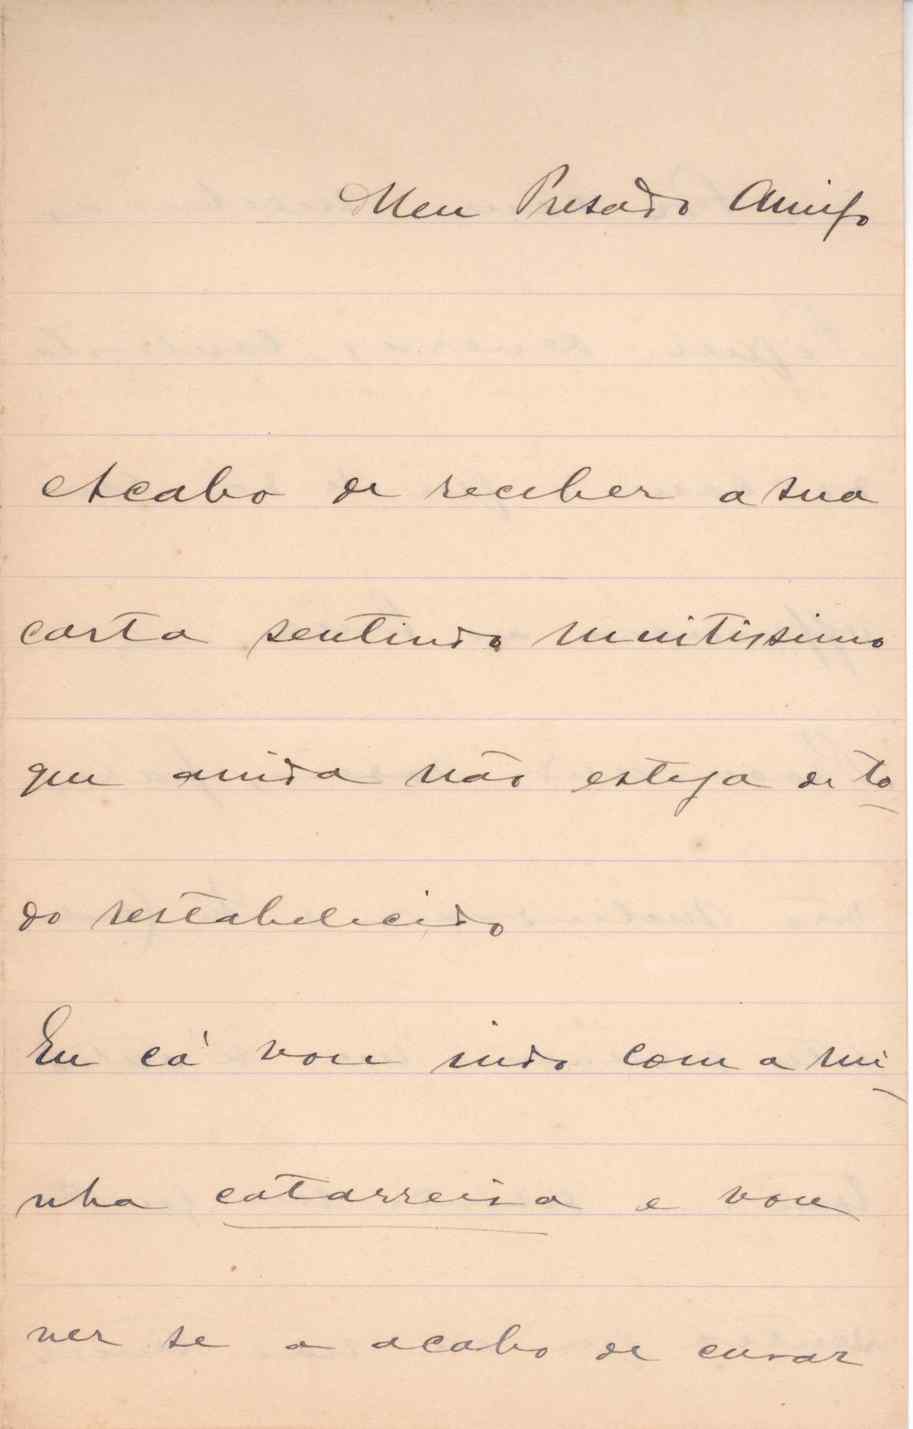 Meu Presado Amigo
Acabo de receber a sua
carta sentindo muitissimo
que ainda não esteja de to
do restabelecido
Eu cá vou indo com a mi
nha catarreira e vou
ver se a acabo de curar